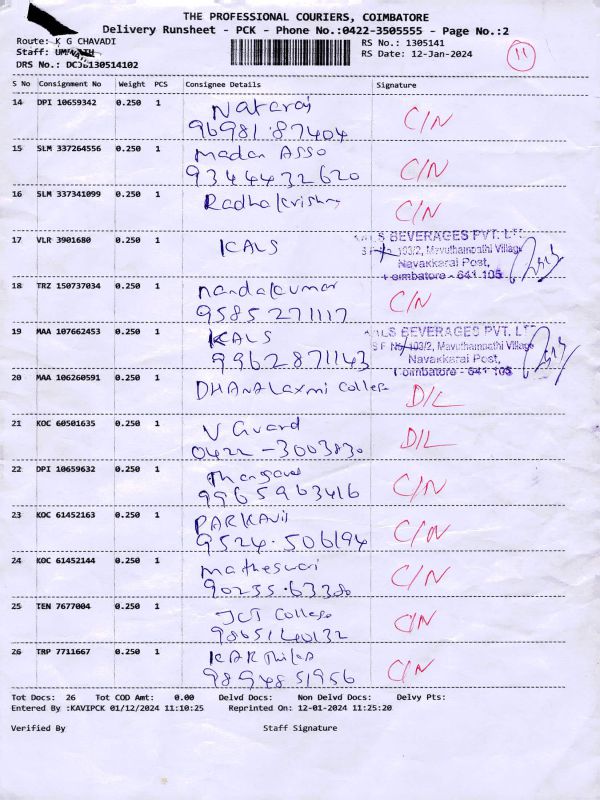 THE PROFESSIONAL COURIERS, COIMBATORE
Delivery Runsheet - PCK - Phone No.:0422-3505555 - Page No.:2
Route: K G CHAVADI
RS No.: 1305141
Staff:
RS Date: 12-Jan-2024
11
DRS No.:
S No Consignment No Weight PCS Consignee Details Signature
14 DPI 10659342 0.250 1 Nataraj C/N
96981.87404
15 SLM 337264556 0.250 1 Madan Asso C/N
9344432620
16 SLM 337341099 0.250 1 Radhakrishna C/N
17 VLR 3901680 0.250 1 KALS
BEVERAGES PVT. LTD
103/2, Mavuthampathi Village
Navakkarai Post,
Coimbatore - 641 105
18 TRZ 150737034 0.250 1 Nandakumar C/N
9585271117
19 MAA 107662453 0.250 1 KALS
9962871143
BEVERAGES PVT. LT
S F No 103/2, Mavuthampathi Village
Navakkarai Post,
Coimbatore - 641 105
20 MAA 106260591 0.250 1 DHANALaxmi College D/L
21 KOC 60501635 0.250 1 V Guard D/L
0422-3003830
22 DPI 10659632 0.250 1 C/N
9965963416
23 KOC 61452163 0.250 1 C/N
9524.506194
24 KOC 61452144 0.250 1 Matheswari C/N
90235.63380
25 TEN 7677004 0.250 1 JCT College C/N
9865140132
26 TRP 7711667 0.250 1 KARThika C/N
9894851956
Tot Docs: 26 Tot COD Amt: 0.00 Delvd Docs: Non Delvd Docs: Delvy Pts:
Entered By :KAVIPCK 01/12/2024 11:10:25 Reprinted On: 12-01-2024 11:25:20
Verified By Staff Signature